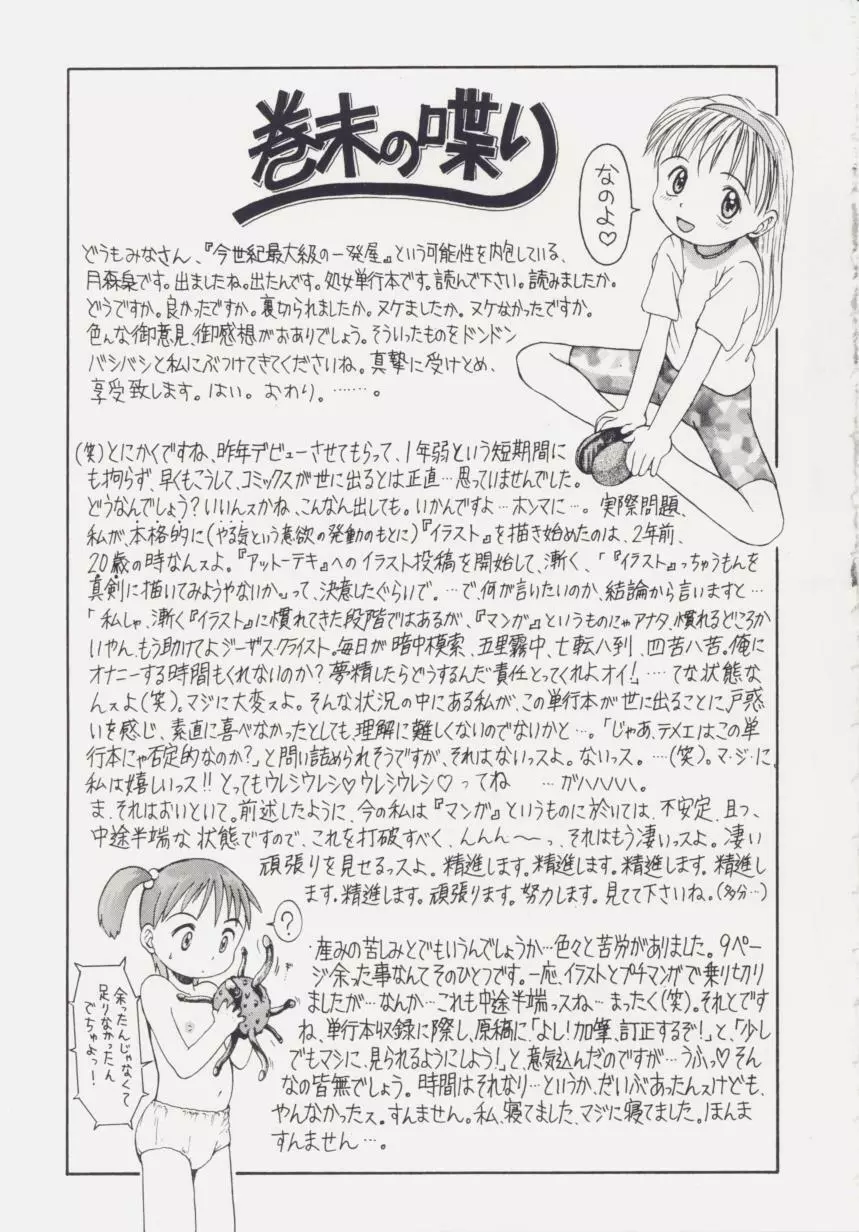 巻末の喋り
なのよ♡
どうもみなさん、『今世紀最大級の一発屋』という可能性を内包している、
月森梟です。出ましたね。出たんです。処女単行本です。読んで下さい。読みましたか。
どうですか。良かったですか。裏切られましたか。ヌケましたか。ヌケなかったですか。
色んな御意見、御感想がおありでしょう。そういったものをドンドン
バシバシと私にぶつけてきてくださいね。真摯に受けとめ、
享受致します。はい。おわり。……。
(笑)とにかくですね、昨年デビューさせてもらって、1年弱という短期間に
も拘らず、早くもこうして、コミックスが世に出るとは正直…思っていませんでした。
どうなんでしょう?いいんスかね、こんなん出しても。いかんですよ…ホンマに…。実際問題、
私が、本格的に(やる気という意欲の発動のもとに)『イラスト』を描き始めたのは、2年前、
20歳の時なんスよ。『アットーテキ』へのイラスト投稿を開始して、漸く、「『イラスト』っちゅうもんを
真剣に描いてみようやないか」って、決意したぐらいで。…で、何が言いたいのか、結論から言いますと…
「私しゃ、漸く『イラスト』に慣れてきた段階ではあるが、『マンガ』というものにゃアナタ、慣れるどころか
いやん、もう助けてよジーザス・クライスト。毎日が暗中模索、五里霧中、七転八到、四苦八苦。俺に
オナニーする時間もくれないのか?夢精したらどうするんだ責任とってくれよオイ!」…てな状態な
んスよ(笑)。マジに大変スよ。そんな状況の中にある私が、この単行本が世に出ることに、戸惑
いを感じ、素直に喜べなかったとしても、理解に難しくないのでないかと…。「じゃあ、テメエは、この単
行本にゃ否定的なのか?」と問い詰められそうですが、それはないっスよ。ないっス。…(笑)。マ・ジ・に、
私は嬉しいっス!!とってもウレシウレシ♡ウレシウレシ♡ってね …ガハハハハ。
ま、それはおいといて。前述したように、今の私は『マンガ』というものに於いては、不安定、且つ、
中途半端な状態ですので、これを打破すべく、んんん〜っ、それはもう凄いっスよ。凄い
頑張りを見せるっスよ。精進します。精進します。精進します。精進し
ます。精進します。頑張ります。努力します。見てて下さいね。(多分…)
?
余ったんじゃなくて
足りなかったん
でちゃよっー!
産みの苦しみとでもいうんでしょうか…色々と苦労がありました。9ペー
ジ余った事なんてそのひとつです。一応、イラストとプチマンガで乗り切り
ましたが…なんか…これも中途半端っスね…まったく(笑)。それとです
ね、単行本収録に際し、原稿に「よし!加筆、訂正するぞ!」と、「少し
でもマシに、見られるようにしよう!」と、意気込んだのですが…うふっ♡そん
なの皆無でしょう。時間はそれなり…というか、だいぶあったんスけども、
やんなかったス。すんません。私、寝てました、マジに寝てました。ほんま
すんません…。